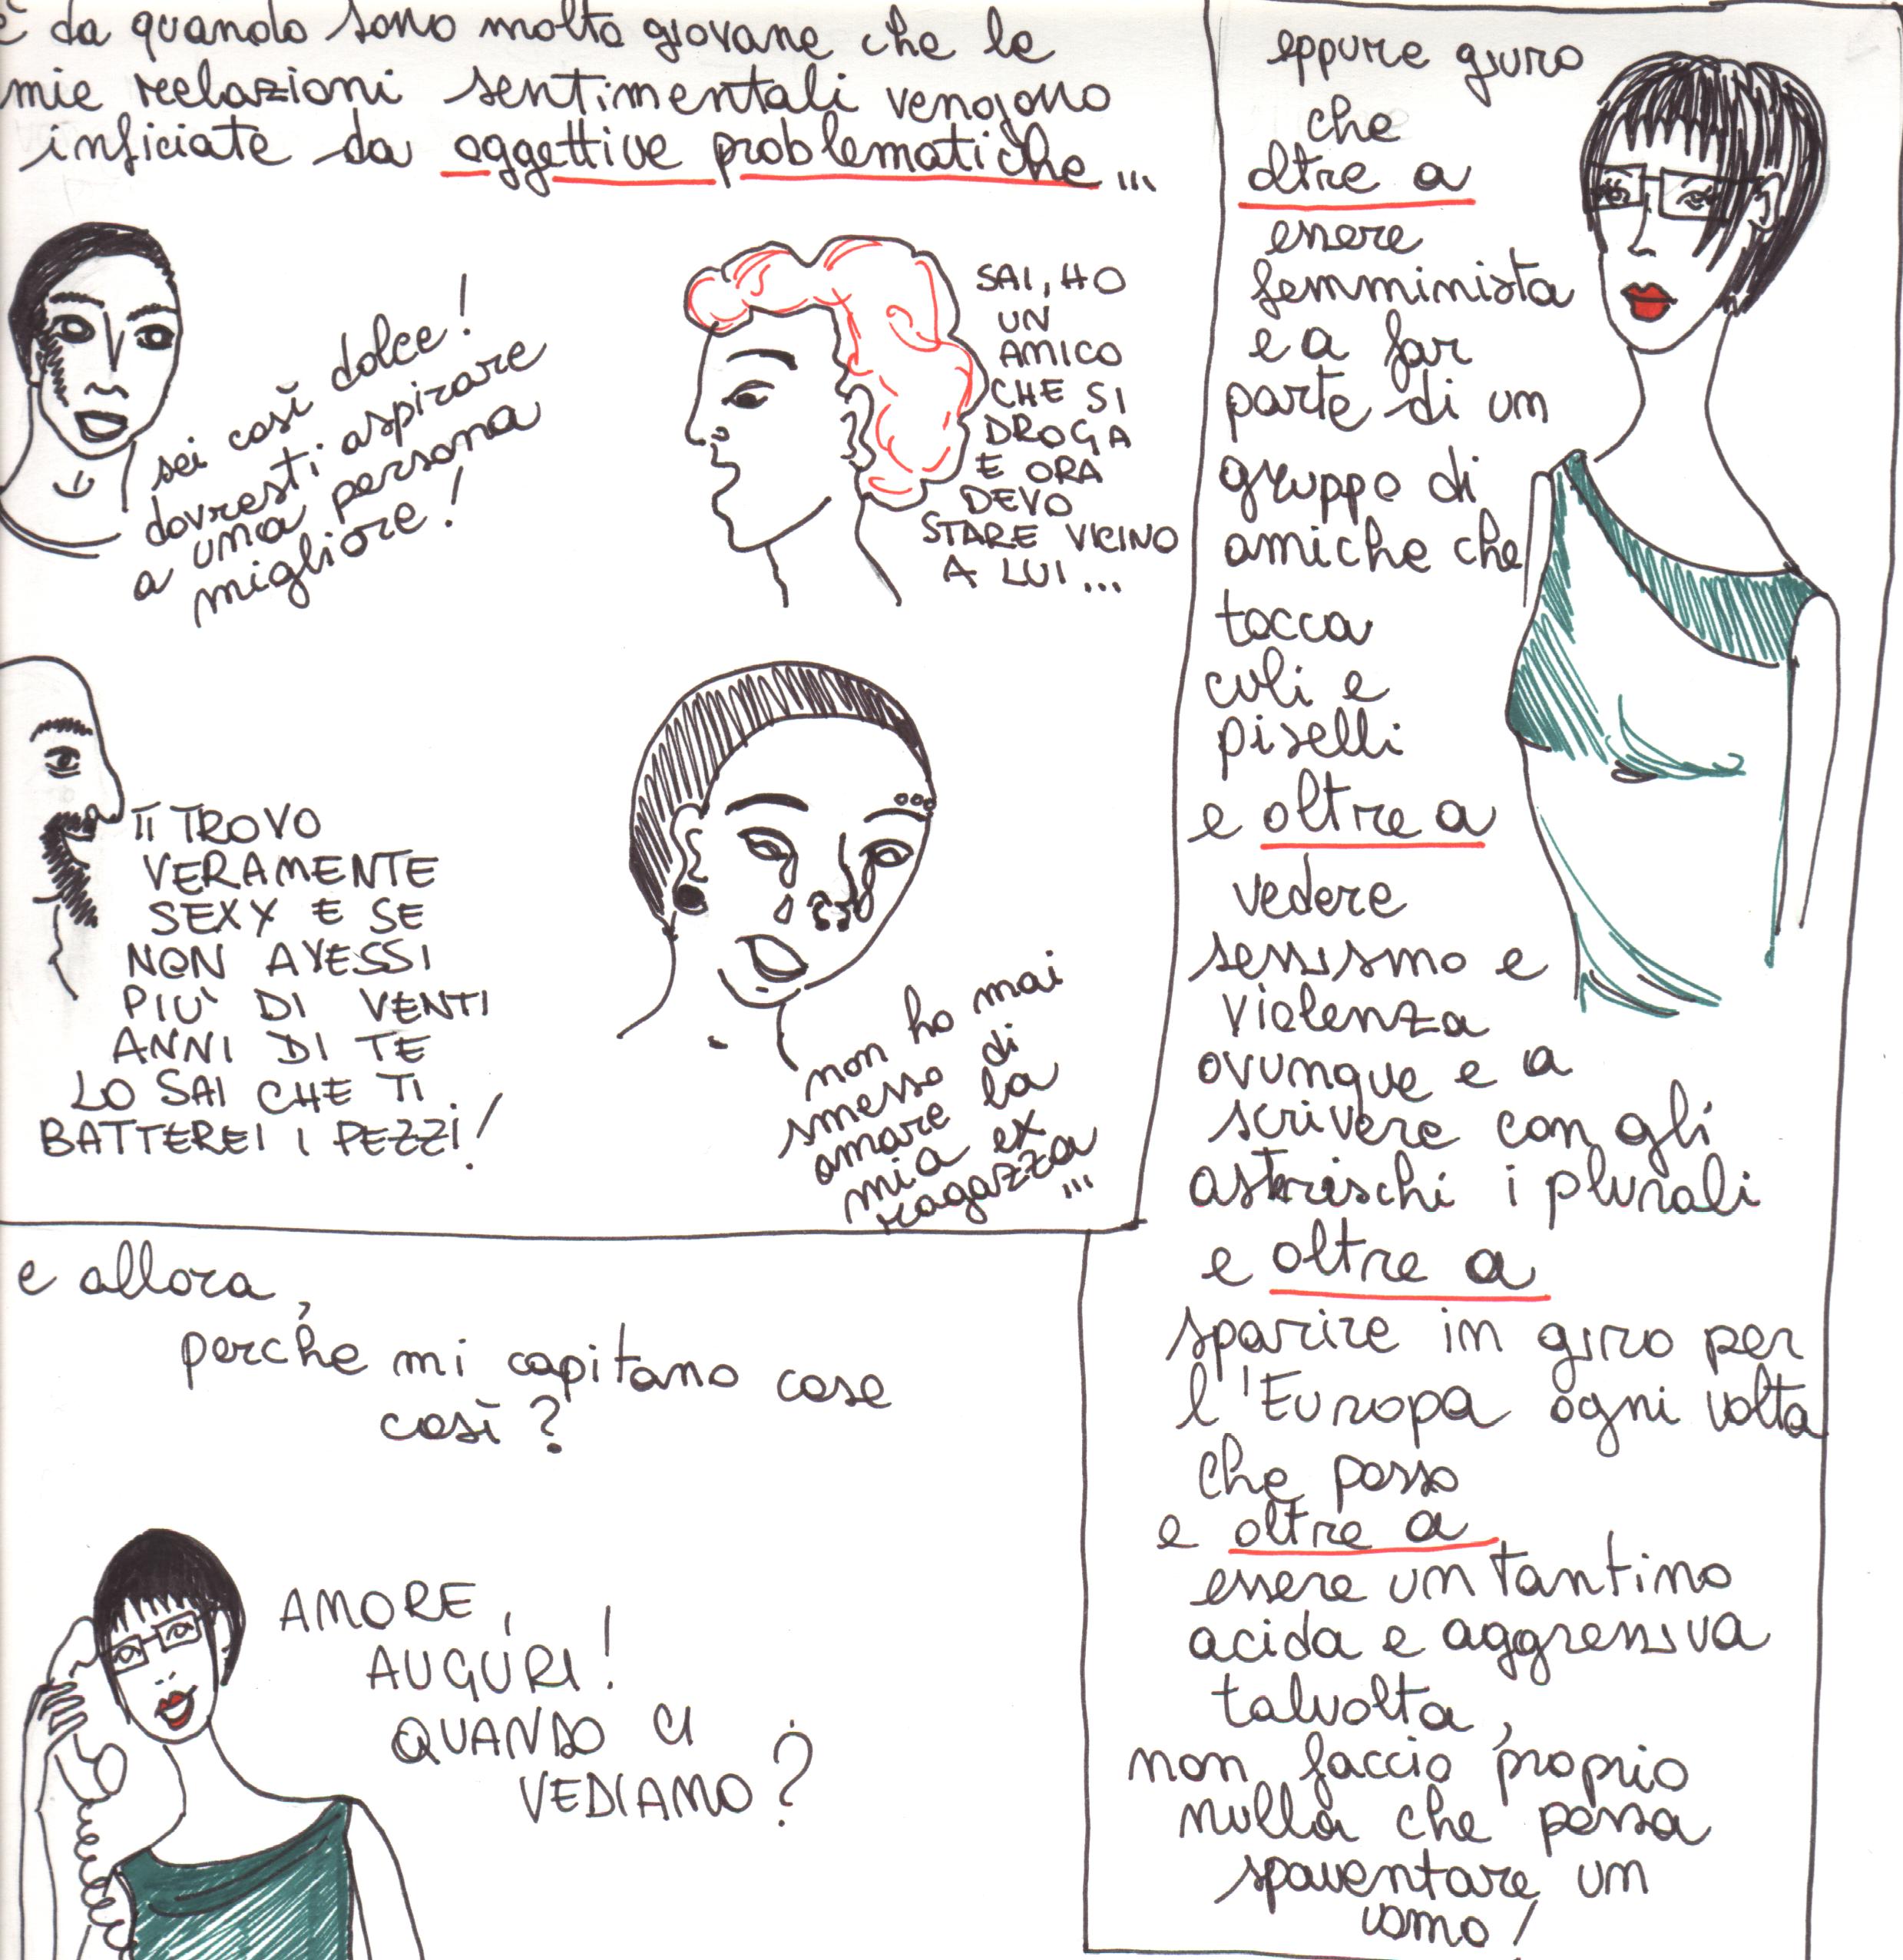 è da quando sono molto giovane che le
mie reelazioni sentimentali vengono
inficiate da oggettive problematiche...
sei così dolce!
dovresti aspirare
a una persona
migliore!
SAI, HO
UN
AMICO
CHE SI
DROGA
E ORA
DEVO
STARE VICINO
A LUI...
TI TROVO
VERAMENTE
SEXY E SE
NON AVESSI
PIÙ DI VENTI
ANNI DI TE
LO SAI CHE TI
BATTEREI I PEZZI!
non ho mai
smesso di
amare la
mia ex
ragazza
...
eppure giuro
che
oltre a
essere
femminista
e a far
parte di un
gruppo di
amiche che
tocca
culi e
piselli
e oltre a
vedere
sessismo e
violenza
ovunque e a
scrivere con gli
astrischi i plurali
e oltre a
sparire in giro per
l'Europa ogni volta
che posso
e oltre a
essere un tantino
acida e aggressiva
talvolta,
non faccio proprio
nulla che possa
spaventare un
uomo!
e allora,
perché mi capitano cose
così?
AMORE,
AUGURI!
QUANDO CI
VEDIAMO?